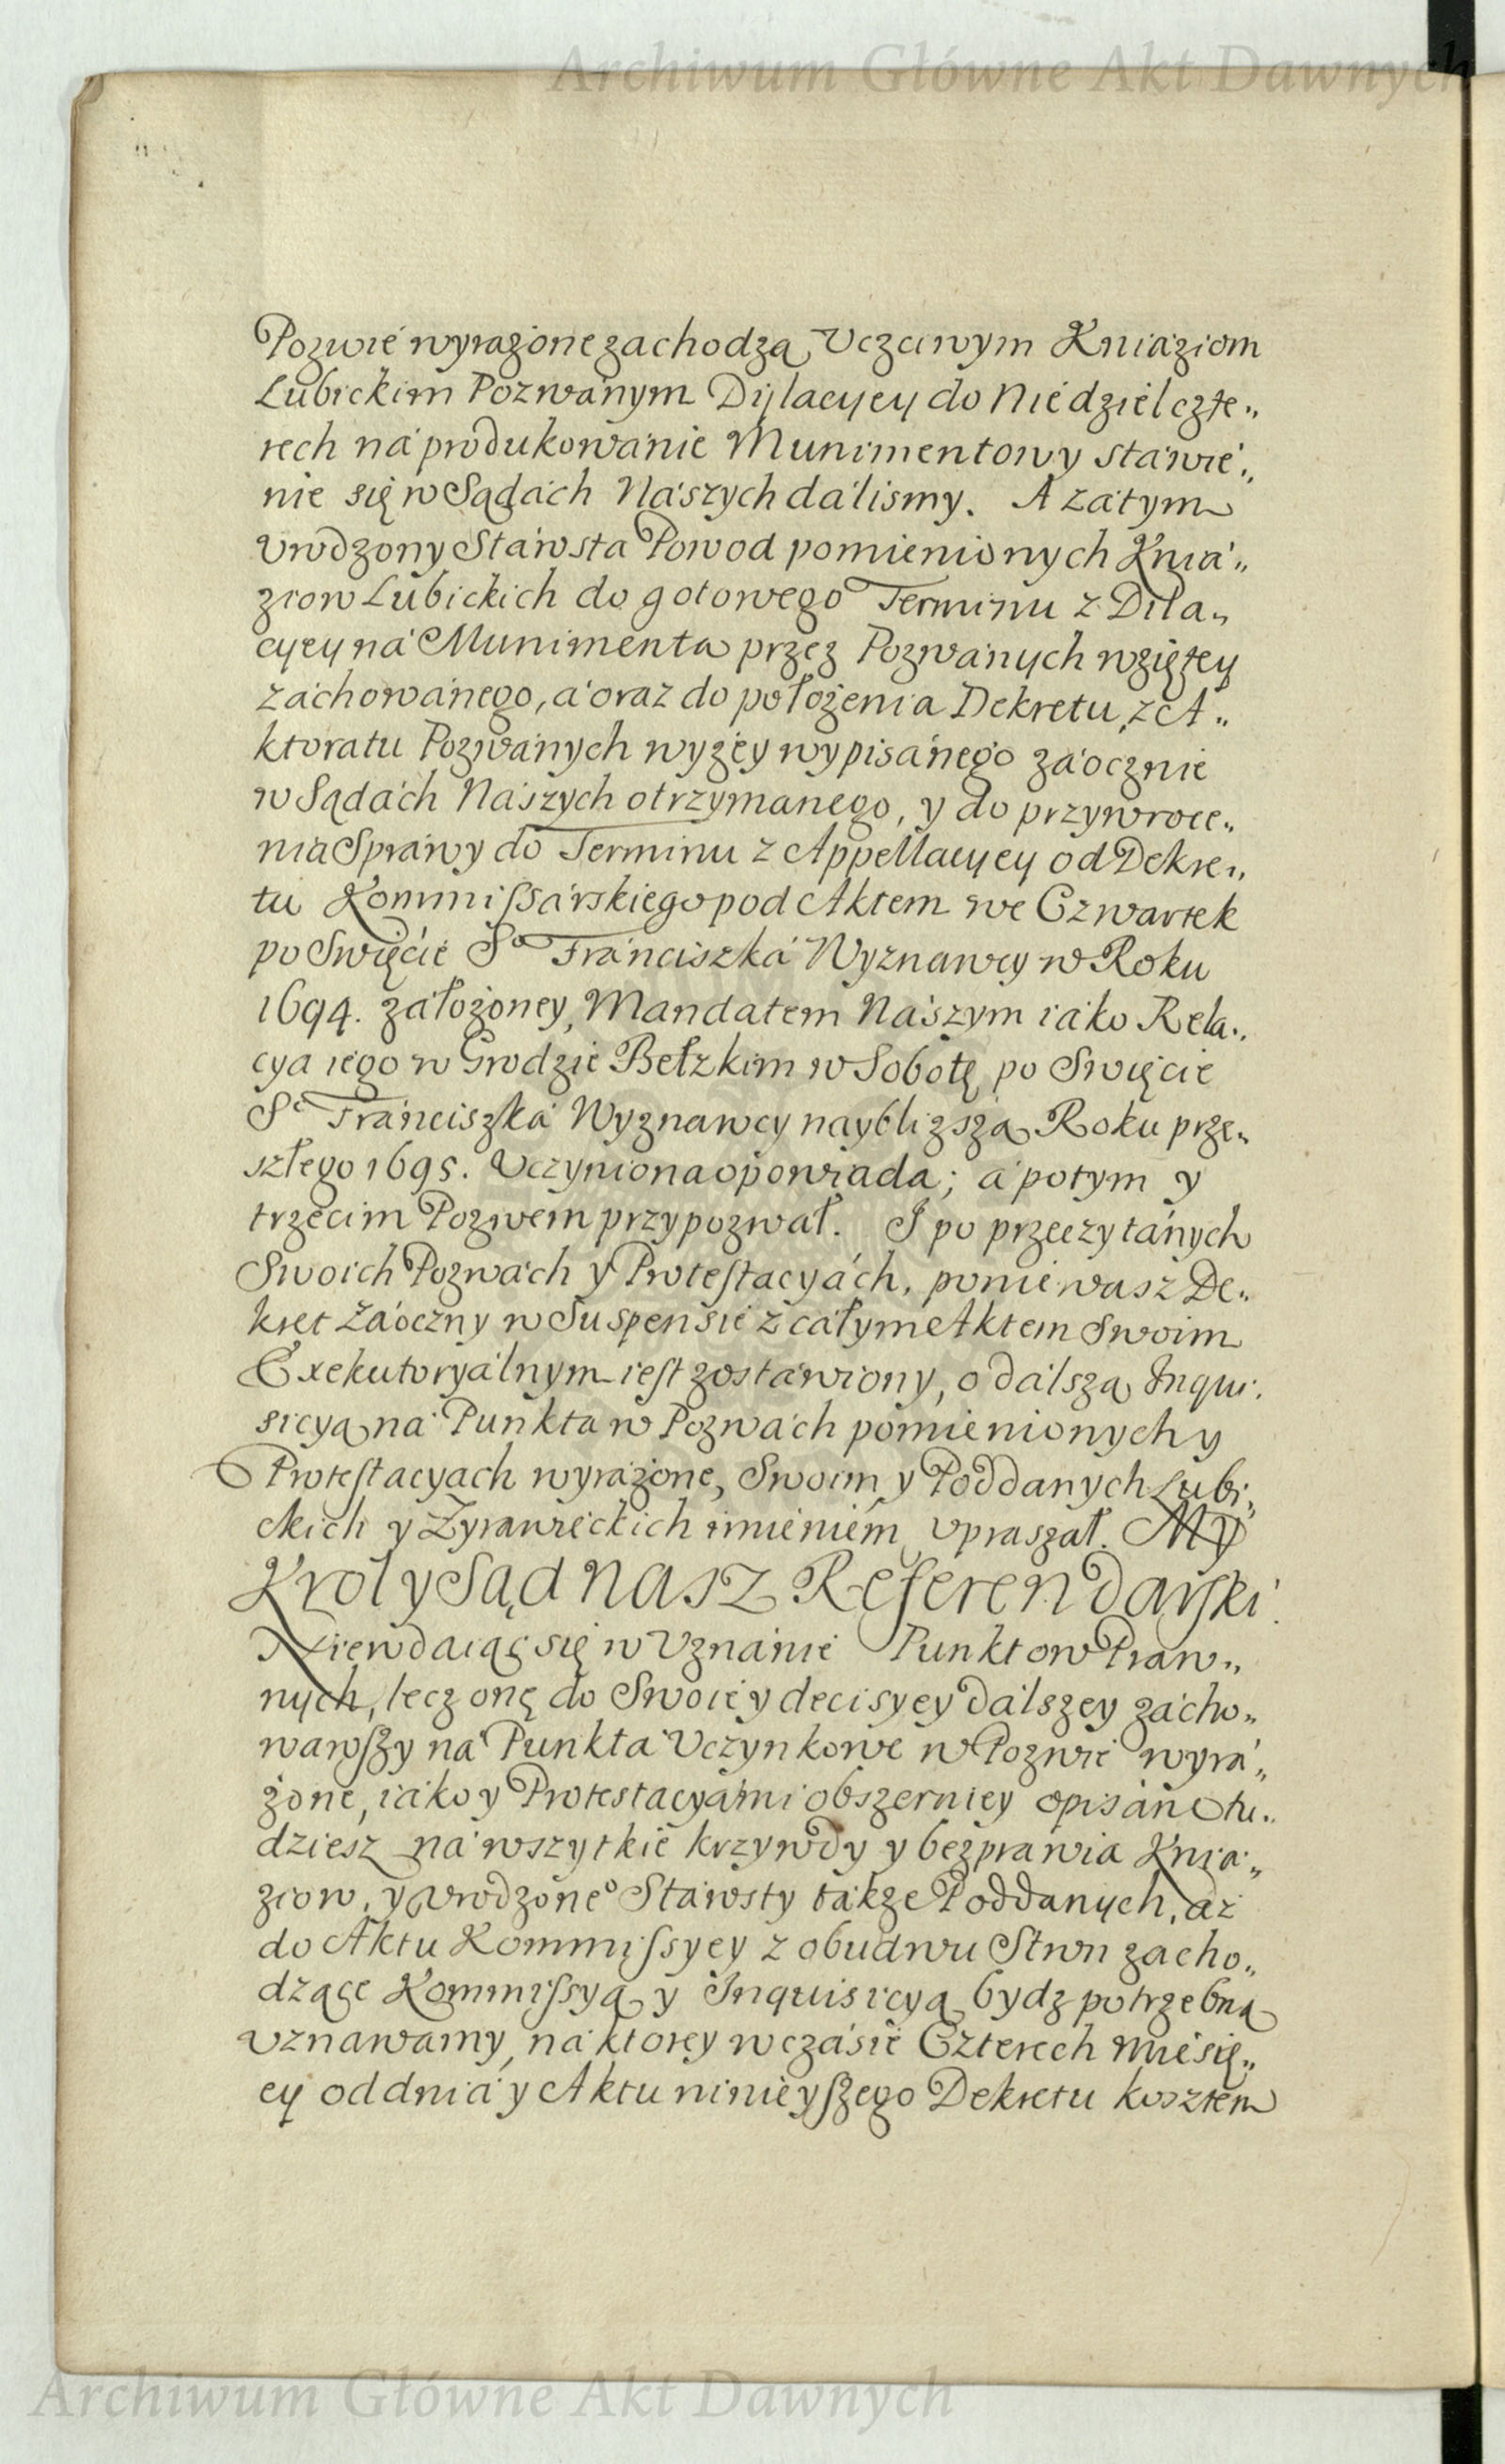 Archiwum Główne Akt Dawnych
Pozwie wyrażone zachodzą Uczciwym Kniaziom
Lubickim Pozwanym Dylacyey do Niedziel czte„
rech ná produkowánie Munimentow y stawie„
nie się w Sądách Nászych dálismy. A zátym
Urodzony Stárosta Powod pomienionych Kniá„
ziow Lubickich do gotowego Terminu z Dila„
cyey ná Munimenta przez Pozwánych wziętey
záchowánego, á oraz do położenia Dekretu, z A„
ktoratu Pozwánych wyżey wypisánego záocznie
w Sądách Nászych otrzymanego, y do przywroce„
nia Spráwy do Terminu z Appellacyey od Dekre„
tu Kommissárskiego pod Aktem we Czwartek
po Swięcie S° Fránciszká Wyznawcy w Roku
1694. záłożoney, Mandatem Nászym iáko Rela„
cya iego w Grodzie Bełzkim w Sobotę po Swięcie
S° Fránciszká Wyznawcy naybliższą Roku prze„
szłego 1695. Uczyniona opowiada; á potym y
trzecim Pozwem przypozwał. I po przeczytánych
Swoich Pozwách y Protestacyách, poniewasz De„
kret Záoczny w Suspensie z cáłym Aktem Swoim
Exekutoryálnym iest zostáwiony, o dálszą Inqui„
sicyą ná Punkta w Pozwách pomienionych y
Protestacyach wyráżone, Swoim y Poddanych Lubi„
ckich y Zyrawieckich imieniem upraszał. My
Krol y Sąd nasz Referendarski.
Niewdaiąc się w Uznánie Punktow Praw„
nych, lecz onę do Swoiey decisyey dálszey zácho„
wawszy ná Punkta Uczynkowe w Pozwie wyrá„
żone, iáko y Protestacyámi obszerniey opisáne tu„
dziesz ná wszytkie krzywdy y bezprawia Kniá„
ziow, y Urodzone° Stárosty tákże Poddanych, áż
do Aktu Kommissyey z obudwu Stron zácho„
dzące Kommissyą y Inquisicyą bydz potrzebną
uznawamy, ná ktorey w czásie Czterech Miesię„
cy od dniá y Aktu ninieyszego Dekretu kosztem
Archiwum Główne Akt Dawnych